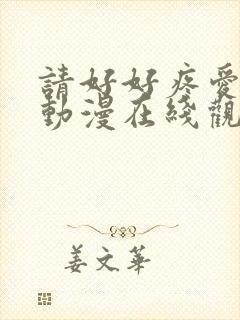 請好好疼愛
動漫在綫觀
姜文華